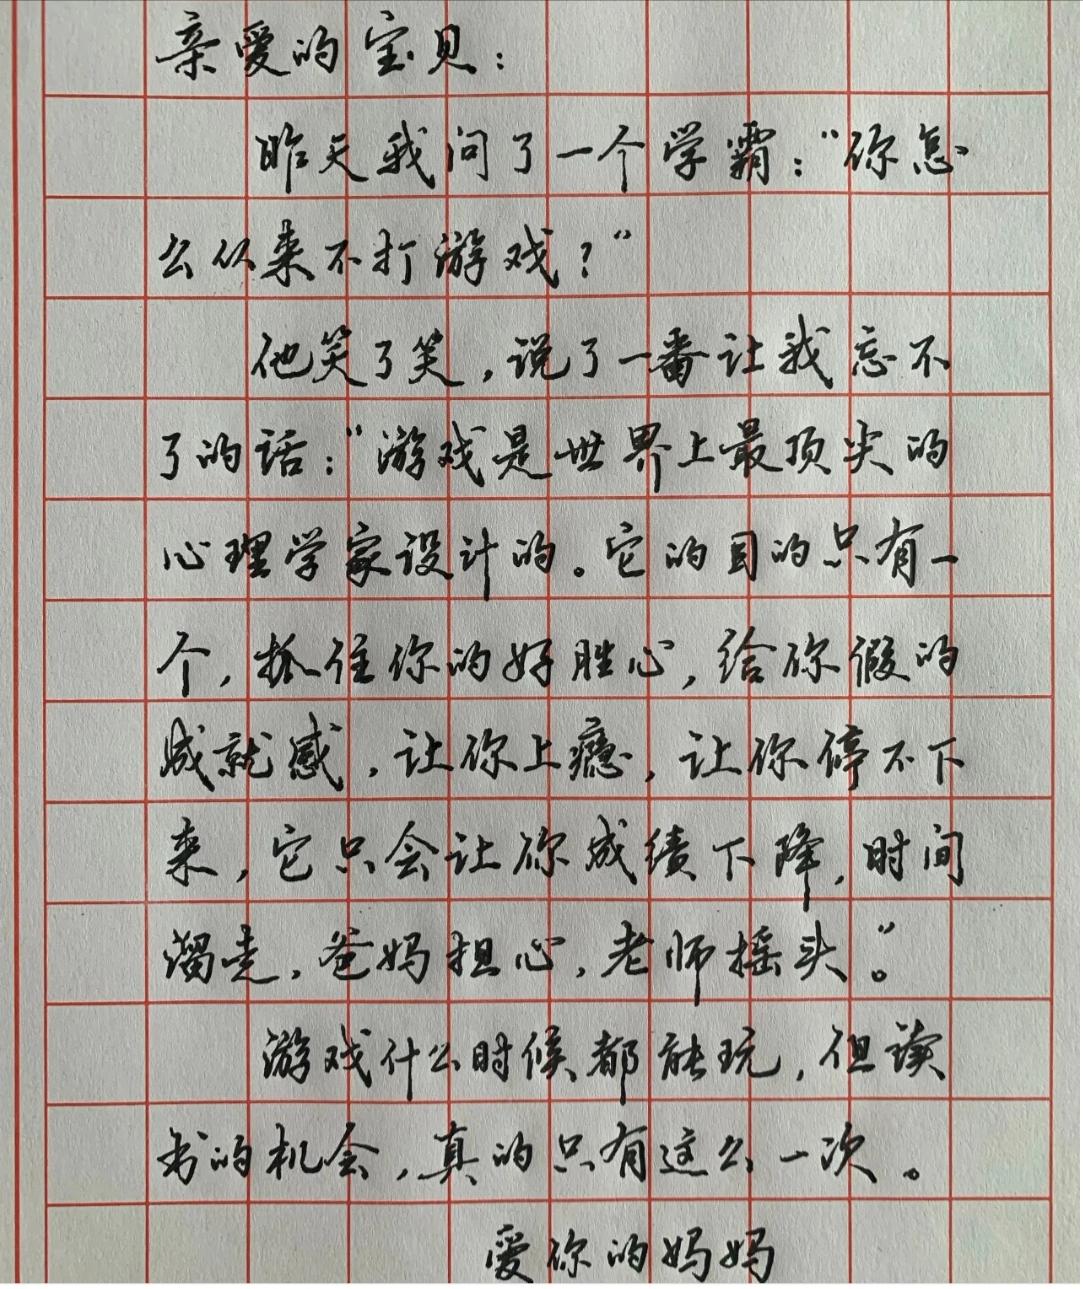 亲爱的宝贝：
昨天我问了一个学霸：“你怎
么从来不打游戏？”
他笑了笑，说了一番让我忘不
了的话：“游戏是世界上最顶尖的
心理学家设计的。它的目的只有一
个，抓住你的好胜心，给你假的
成就感，让你上瘾，让你停不下
来，它只会让你成绩下降，时间
溜走，爸妈担心，老师摇头。”
游戏什么时候都能玩，但读
书的机会，真的只有这么一次。
爱你的妈妈